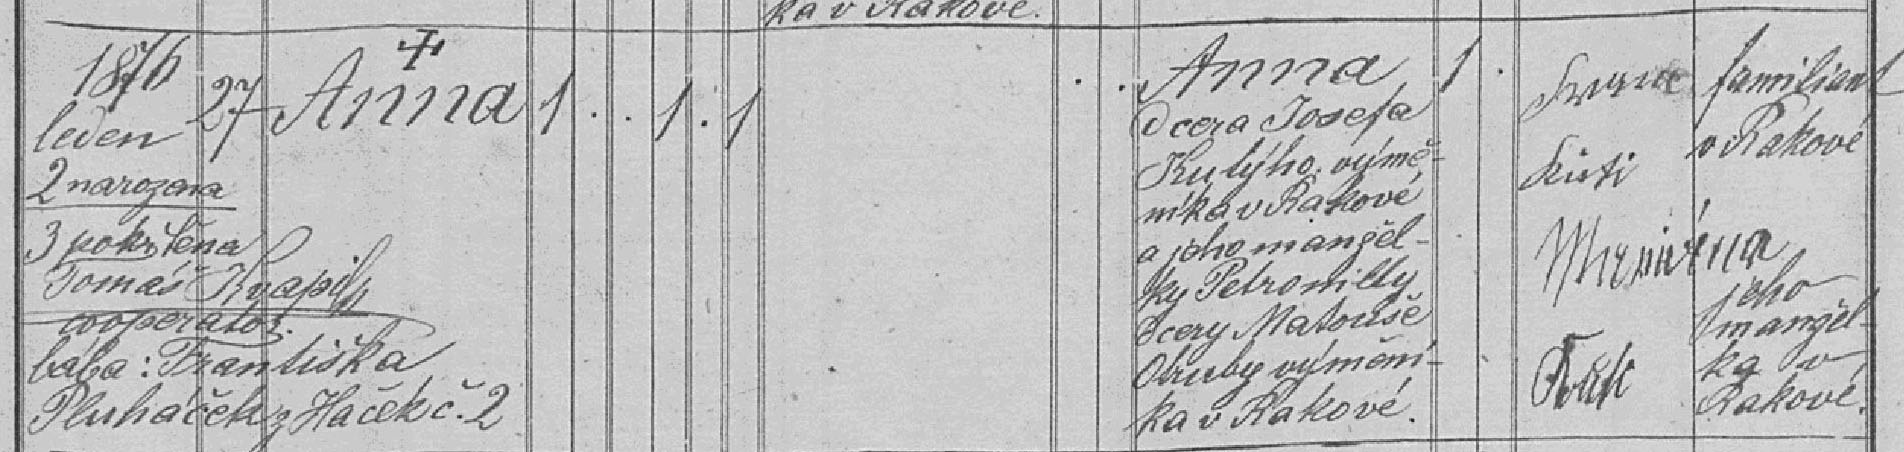 ka v Rakové.
1876
leden
2 narozena
3 pokřtěna
Tomáš Kvapil
cooperator.
bába: Františka
Pluháček z Haček č. 2
27
Anna
1 . . 1 . 1
. .
Anna
dcera Josefa
Kutýho, výmě-
níka v Rakové
a jeho manžel-
ky Petronilly
dcery Matouše
Otruby výmění-
ka v Rakové.
1 .
familiant
v Rakové
jeho
manžel-
ka v
Rakové.